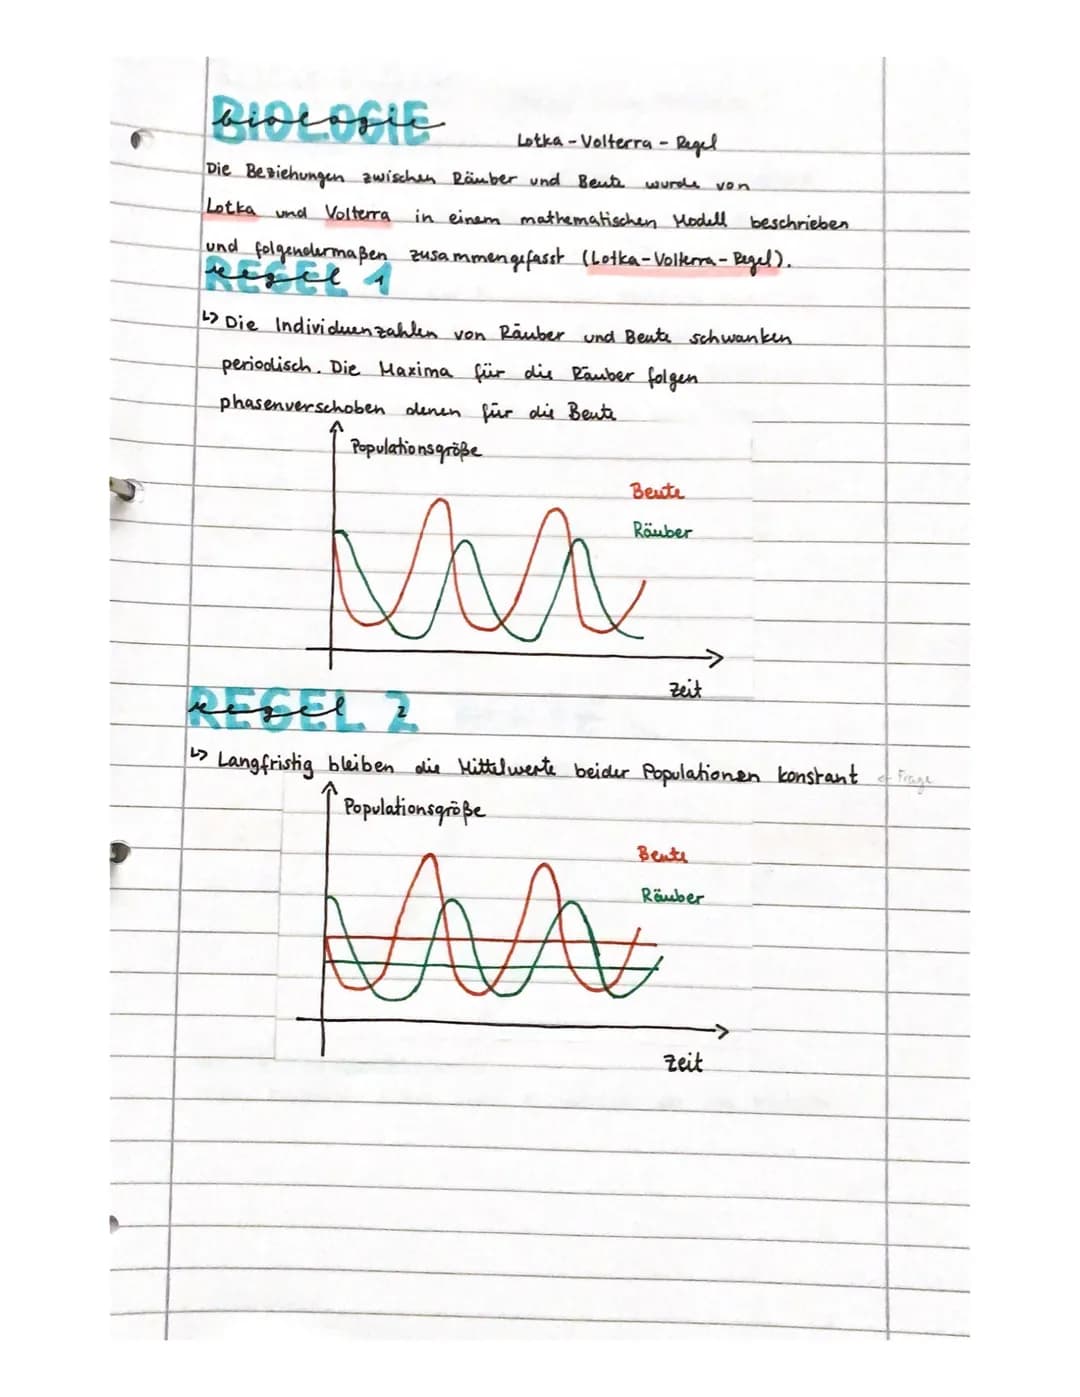 BIOLOGIE
biologie
Lotka - Volterra - Regel
Die Beziehungen zwischen Räuber und Beute wurde von
Lotka und Volterra in einem mathematischen Modell beschrieben
und folgendermaßen zusammengefasst (Lotka-Volterra-Regel).
REGEL 1
regel 1
↳ Die Individuenzahlen von Räuber und Beute schwanken
periodisch. Die Maxima für die Räuber folgen
phasenverschoben denen für die Beute
Populationsgröße
Beute
Räuber
Zeit
REGEL 2
regel 2
↳ Langfristig bleiben die Mittelwerte beider Populationen konstant ← Frage
Populationsgröße
Beute
Räuber
Zeit